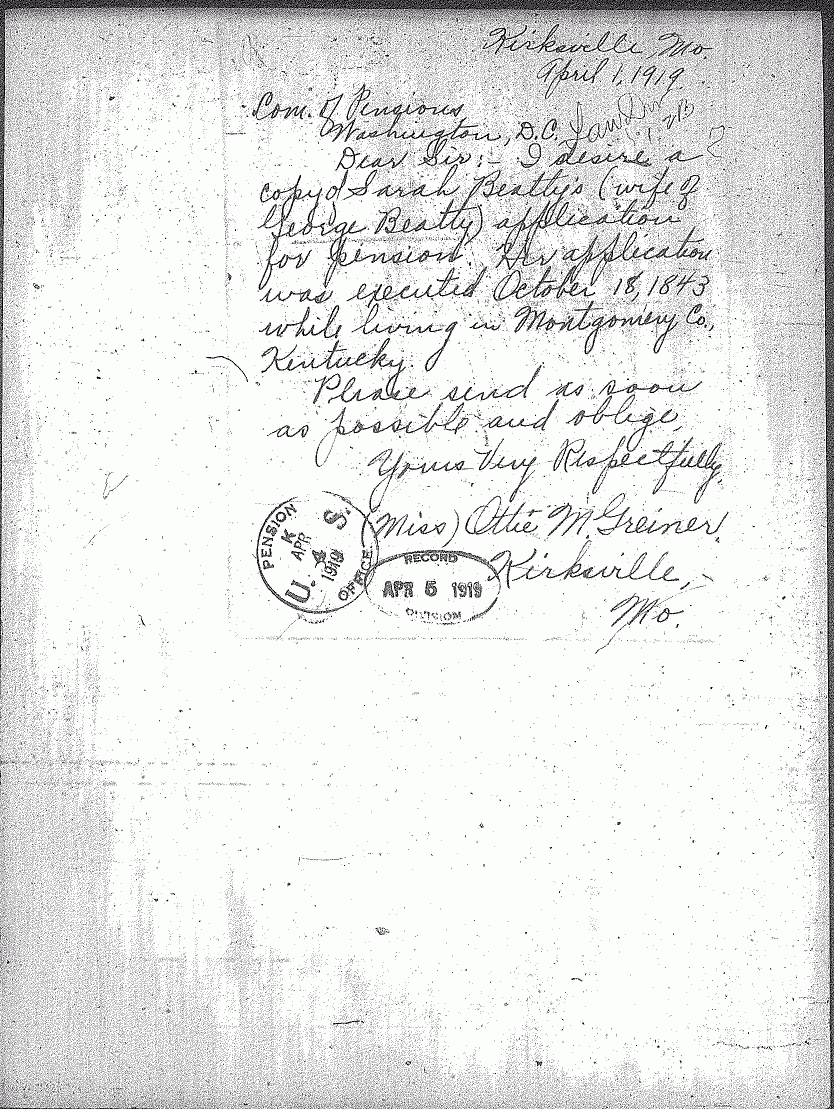 Kirksville, Mo.
April 1, 1919.
Com. of Pensions
Washington, D.C.
Dear Sir:- I desire a
copy of Sarah Beatty's (wife of
George Beatty) application
for pension. Her application
was executed October 18, 1843
while living in Montgomery Co.,
Kentucky.
Please send as soon
as possible and oblige,
Yours Very Respectfully,
(Miss) Ottie M. Greiner.
Kirksville,-
Mo.
PENSION OFFICE
K
APR
4
1919
U. S.
RECORD
APR 5 1919
DIVISION